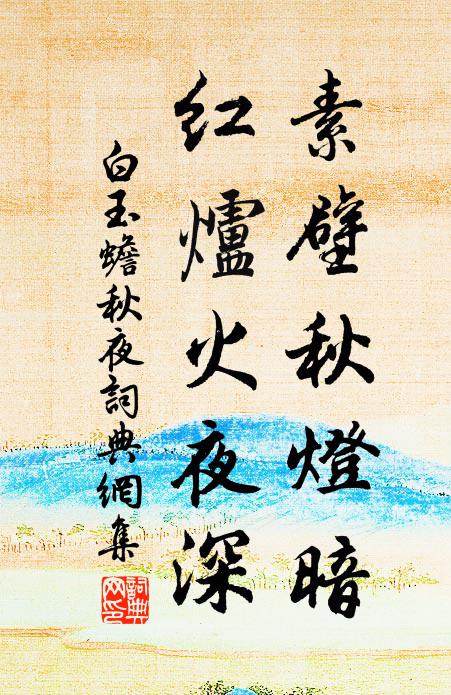 素壁秋燈暗
紅爐火夜深
白玉蟾秋夜詞典網集